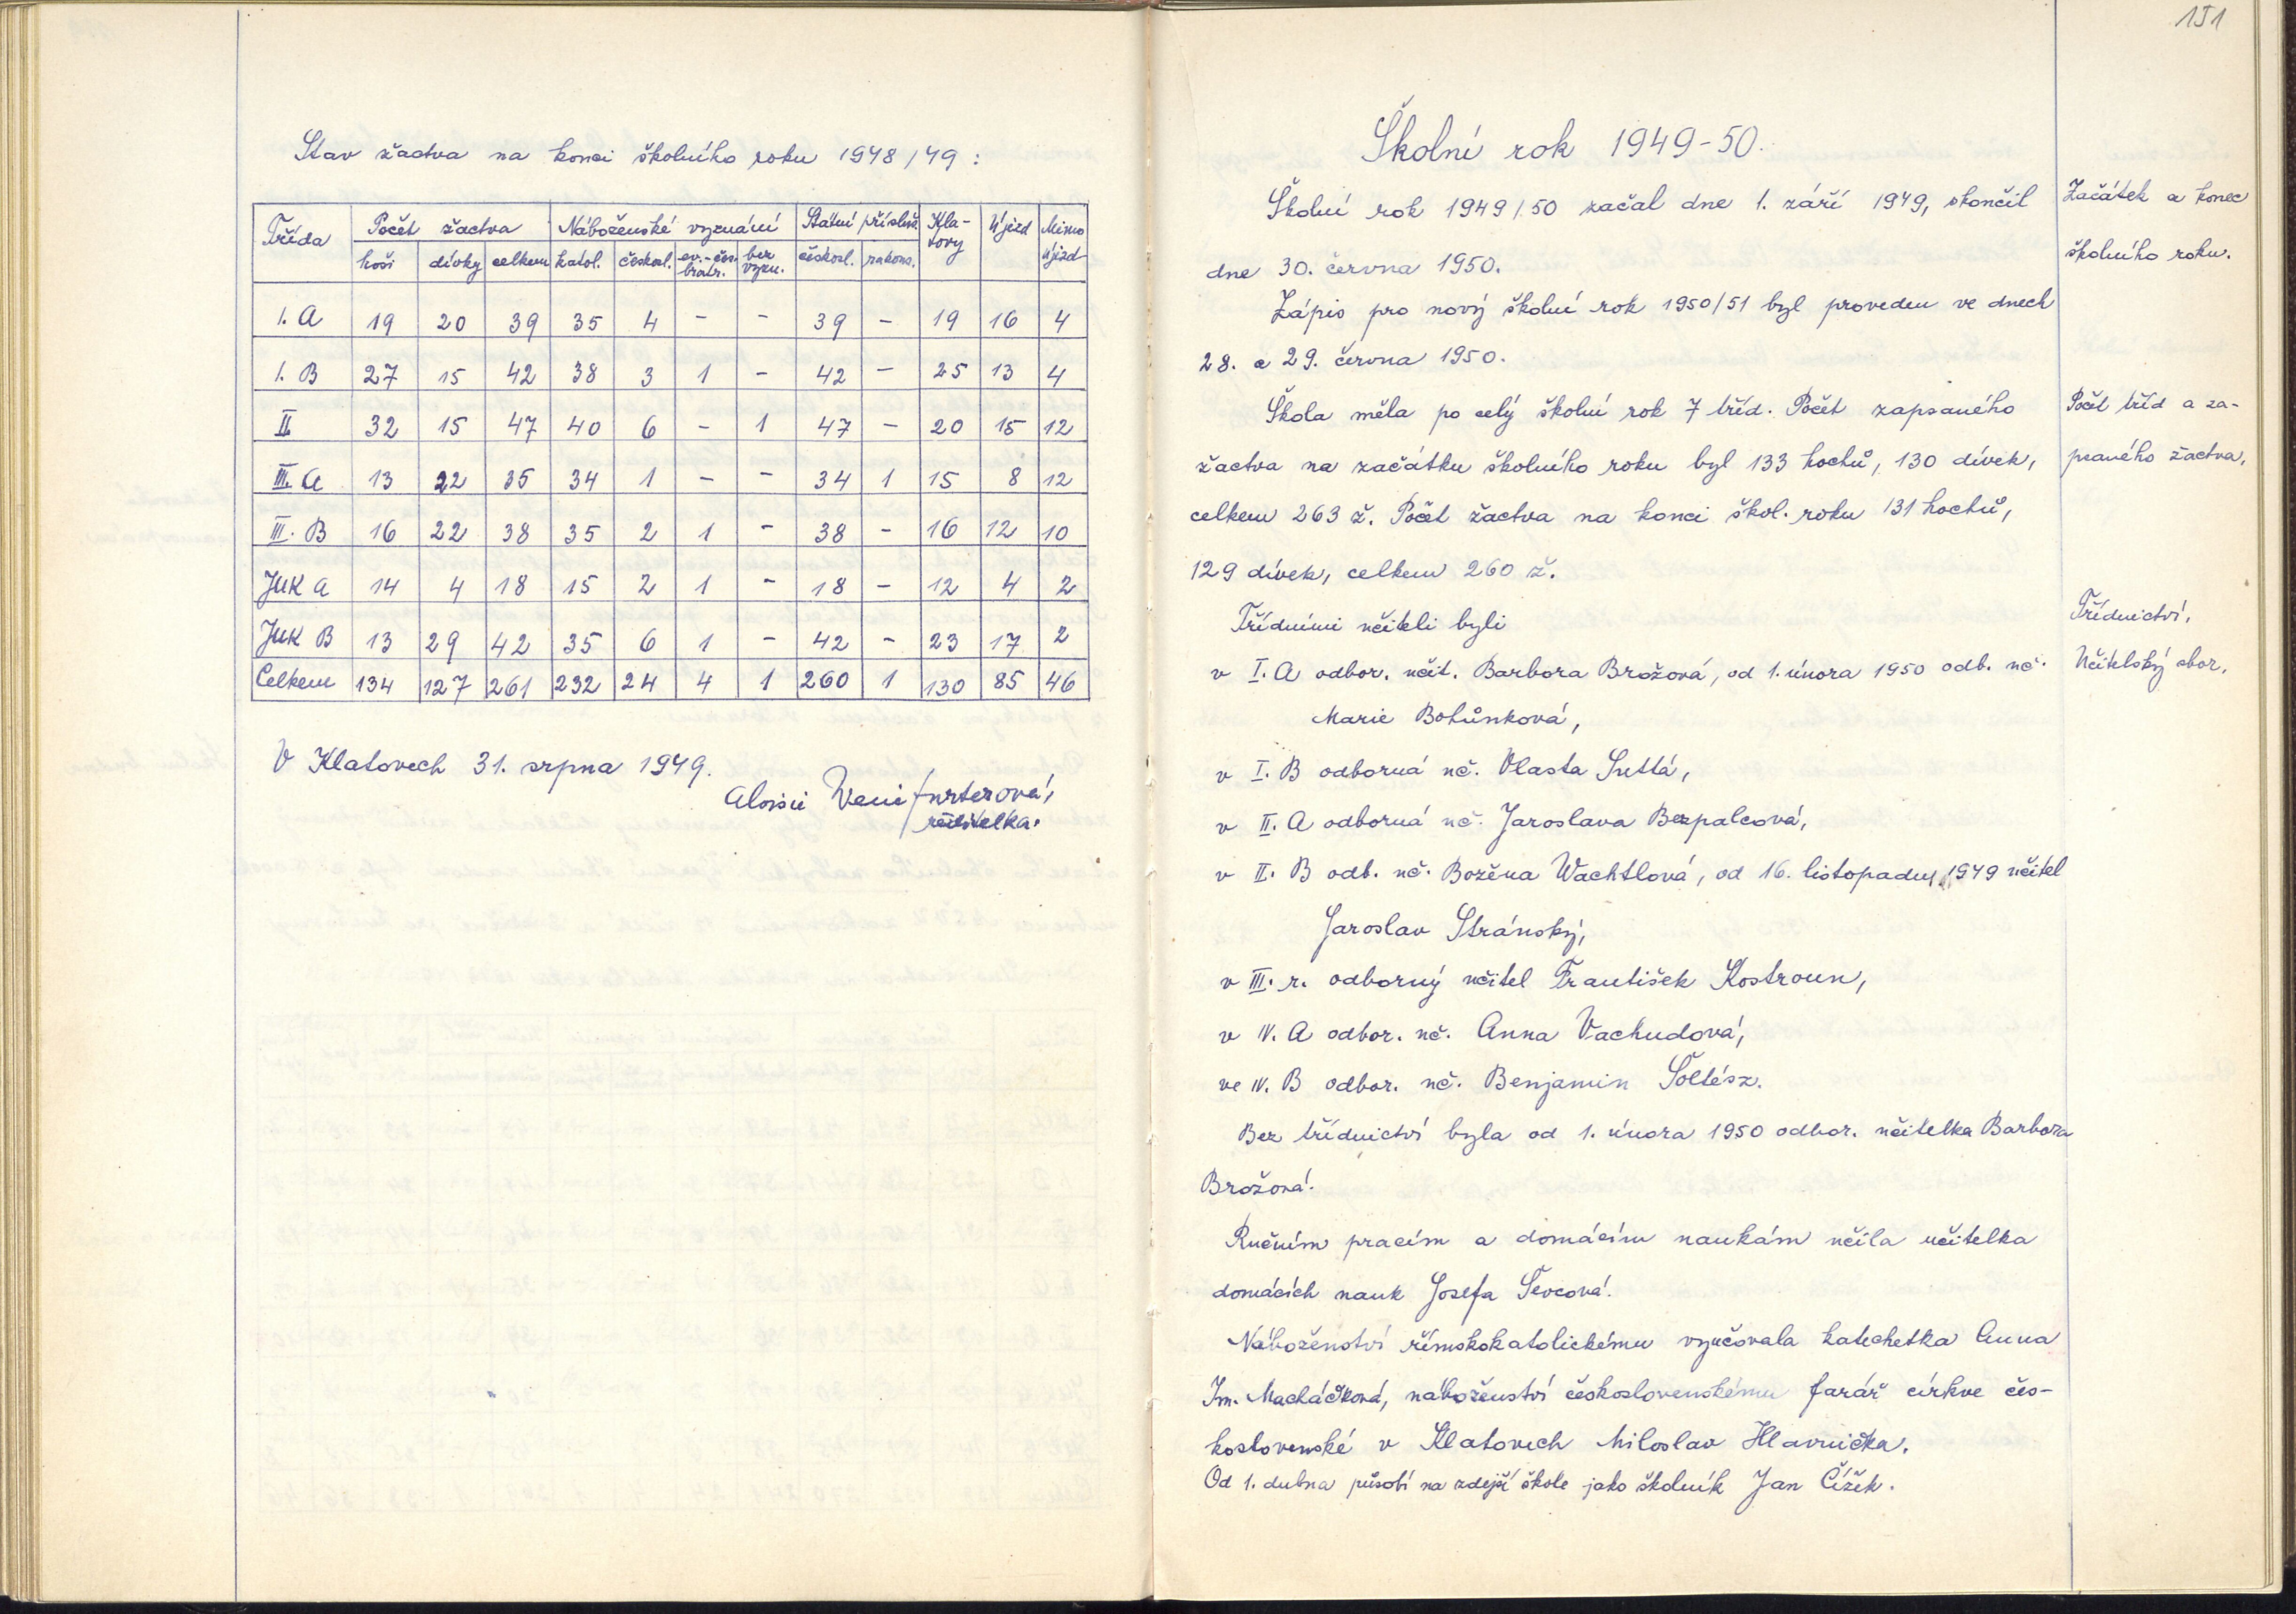 Stav žactva na konci školního roku 1948/49:
Třída Počet žactva Náboženské vyznání Státní příslušn. Kla-tovy Újezd Mimo újezd
hoši dívky celkem katol. českosl. ev.-čes. bratr. bez vyzn. českosl. rakous.
I. A 19 20 39 35 4 - - 39 - 19 16 4
I. B 27 15 42 38 3 1 - 42 - 25 13 4
II. 32 15 47 40 6 - 1 47 - 20 15 12
III. A 13 22 35 34 1 - - 34 1 15 8 12
III. B 16 22 38 35 2 1 - 38 - 16 12 10
JUK A 14 4 18 15 2 1 - 18 - 12 4 2
JUK B 13 29 42 35 6 1 - 42 - 23 17 2
Celkem 134 127 261 232 24 4 1 260 1 130 85 46
V Klatovech 31. srpna 1949.
Aloisie Wenifurterová,
ředitelka.
151
Školní rok 1949-50.
Školní rok 1949/50 začal dne 1. září 1949, skončil
dne 30. června 1950.
Začátek a konec
školního roku.
Zápis pro nový školní rok 1950/51 byl proveden ve dnech
28. a 29. června 1950.
Škola měla po celý školní rok 7 tříd. Počet zapsaného
žactva na začátku školního roku byl 133 hochů, 130 dívek,
celkem 263 ž. Počet žactva na konci škol. roku 131 hochů,
129 dívek, celkem 260 ž.
Počet tříd a za-
psaného žactva.
Třídními učiteli byli
v I. A odbor. učit. Barbora Brožová, od 1. února 1950 odb. uč.
Marie Botůnková,
Třídnictví,
Učitelský sbor.
v I. B odborná uč. Vlasta Suttá,
v II. A odborná uč. Jaroslava Bezpalcová,
v II. B odb. uč. Božena Wachtlová, od 16. listopadu 1949 učitel
Jaroslav Stránský,
v III. r. odborný učitel František Kostroun,
v IV. A odbor. uč. Anna Vachudová,
ve IV. B odbor. uč. Benjamin Šoltész.
Bez třídnictví byla od 1. února 1950 odbor. učitelka Barbora
Brožová.
Ručním pracím a domácím naukám učila učitelka
domácích nauk Josefa Ševcová.
Náboženství římskokatolickému vyučovala katechetka Anna
Im. Macháčková, náboženství československému farář církve čes-
koslovenské v Klatovech Miloslav Hlavnička.
Od 1. dubna působí na zdejší škole jako školník Jan Čížek.